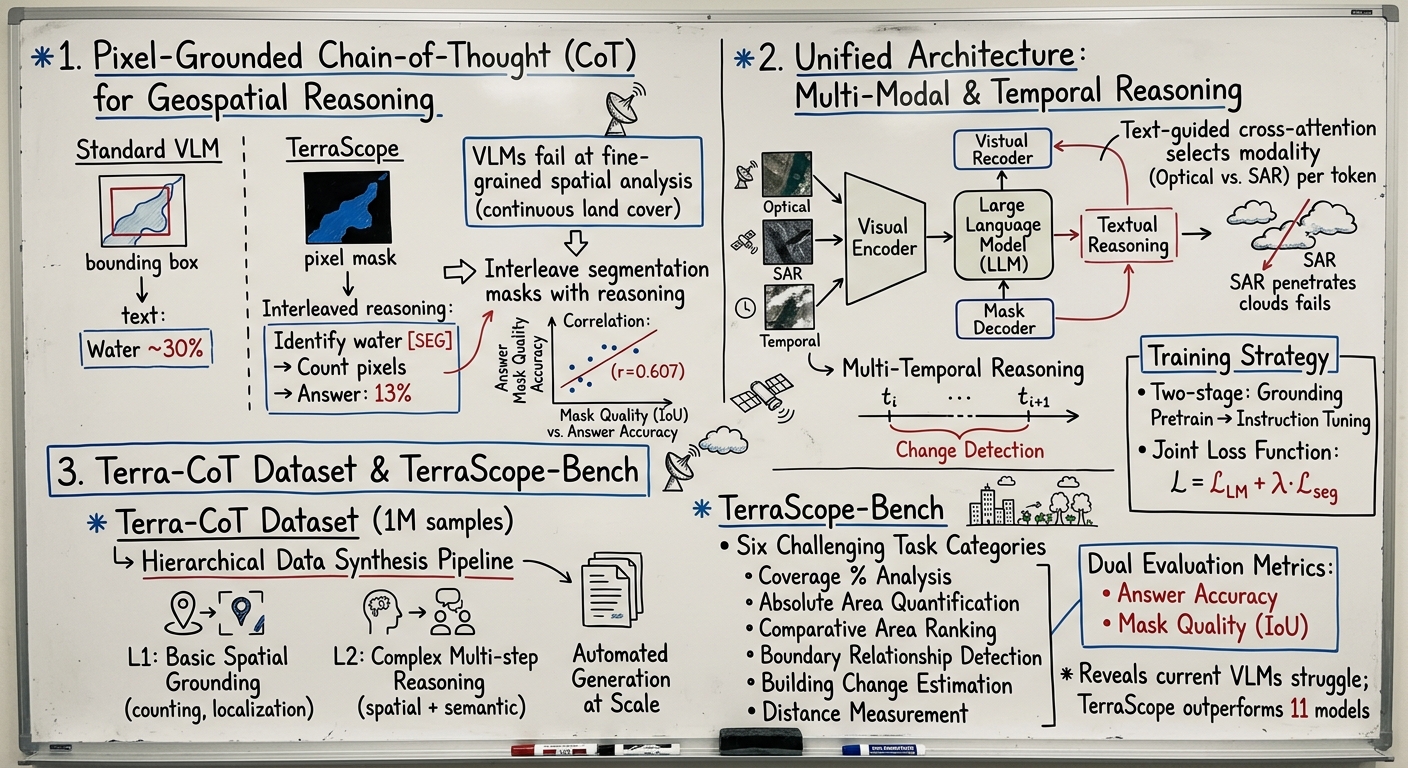 *1. Pixel-Grounded Chain-of-Thought (CoT)
for Geospatial Reasoning
Standard VLM
bounding box
text:
Water ~30%
TerraScope
pixel mask
Interleaved reasoning:
Identify water [SEG]
→ Count pixels
→ Answer: 13%
VLMs fail at fine-
grained spatial analysis
(continuous land cover)
Interleave segmentation
masks with reasoning
Correlation:
Answer
Mask Quality
Accuracy
(r=0.607)
Mask Quality (IoU)
vs. Answer Accuracy
*2. Unified Architecture:
Multi-Modal & Temporal Reasoning
Optical
SAR
Temporal
Visual
Encoder
Vistual
Recoder
Large
Language
Model
(LLM)
Mask
Decoder
Textual
Reasoning
Text-guided cross-attention
selects modality
(Optical vs. SAR) per token
SAR
SAR penetrates
clouds fails
Multi-Temporal Reasoning
t_i ... t_{i+1}
Change Detection
Training Strategy
• Two-stage: Grounding
Pretrain → Instruction Tuning
• Joint Loss Function:
L = L_LM + λ·L_seg
3. Terra-CoT Dataset & TerraScope-Bench
* Terra-CoT Dataset (1M samples)
↳ Hierarchical Data Synthesis Pipeline
L1: Basic Spatial
Grounding
(counting, localization)
L2: Complex Multi-step
Reasoning
(spatial + semantic)
Automated
Generation
at Scale
* TerraScope-Bench
• Six Challenging Task Categories
• Coverage % Analysis
• Absolute Area Quantification
• Comparative Area Ranking
• Boundary Relationship Detection
• Building Change Estimation
• Distance Measurement
Dual Evaluation Metrics:
• Answer Accuracy
• Mask Quality (IoU)
* Reveals current VLMs struggle;
TerraScope outperforms 11 models